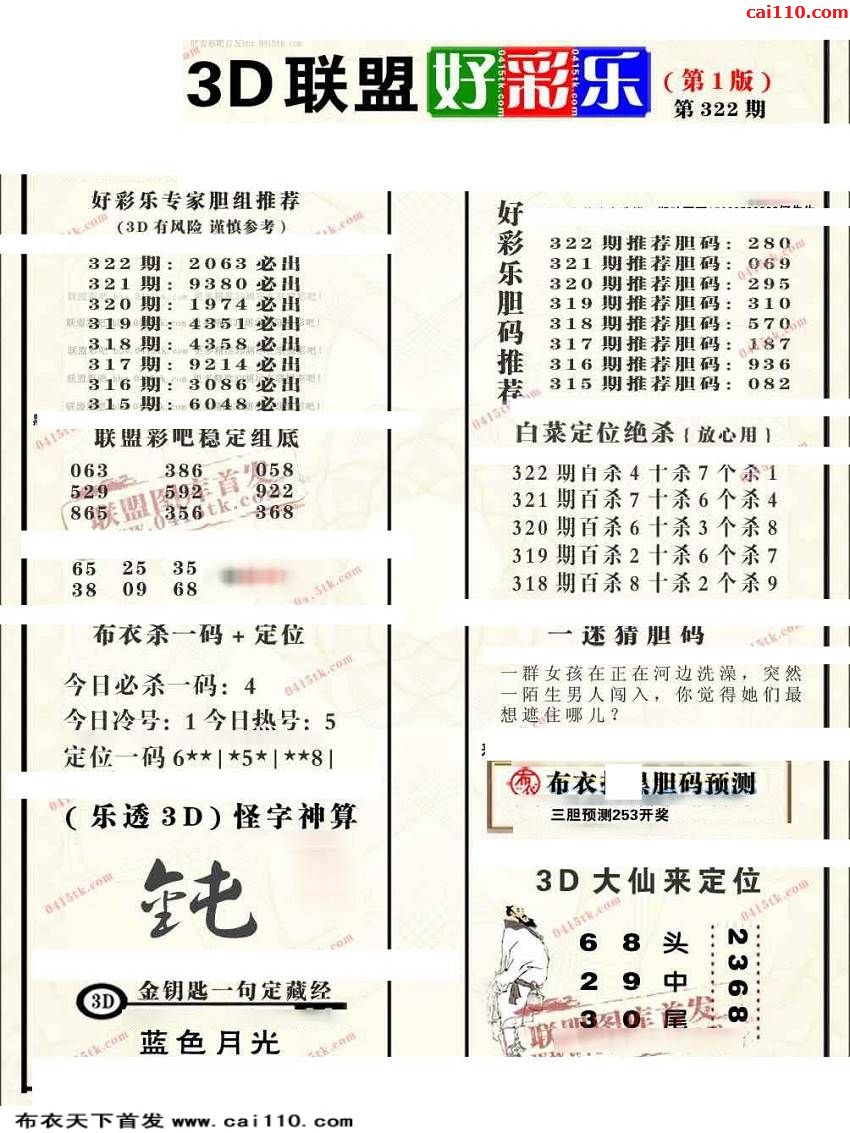 cai110.com
3D联盟 好彩乐
(第1版)
第322期
好彩乐专家胆组推荐
(3D有风险 谨慎参考)
322期: 2063必出
321期: 9380必出
320期: 1974必出
319期: 4351必出
318期: 4358必出
317期: 9214必出
316期: 3086必出
315期: 6048必出
联盟彩吧稳定组底
063 386 058
529 592 922
865 356 368
65 25 35
38 09 68
布衣杀一码+定位
今日必杀一码: 4
今日冷号: 1 今日热号: 5
定位一码 6**|*5*|**8|
(乐透3D)怪字神算
3D 金钥匙一句定藏经
蓝色月光
好彩乐胆码推荐
322期推荐胆码: 280
321期推荐胆码: 069
320期推荐胆码: 295
319期推荐胆码: 310
318期推荐胆码: 570
317期推荐胆码: 187
316期推荐胆码: 936
315期推荐胆码: 082
白菜定位绝杀{放心用}
322期百杀4十杀7个杀1
321期百杀7十杀6个杀4
320期百杀6十杀3个杀8
319期百杀2十杀6个杀7
318期百杀8十杀2个杀9
一迷猜胆码
一群女孩在正在河边洗澡，突然
一陌生男人闯入，你觉得她们最
想遮住哪儿？
布衣 胆码预测
三胆预测253开奖
3D大仙来定位
6 8 头
2 9 中
3 0 尾
2368
联盟图库首发
www.0415tk.com
布衣天下首发 www.cai110.com